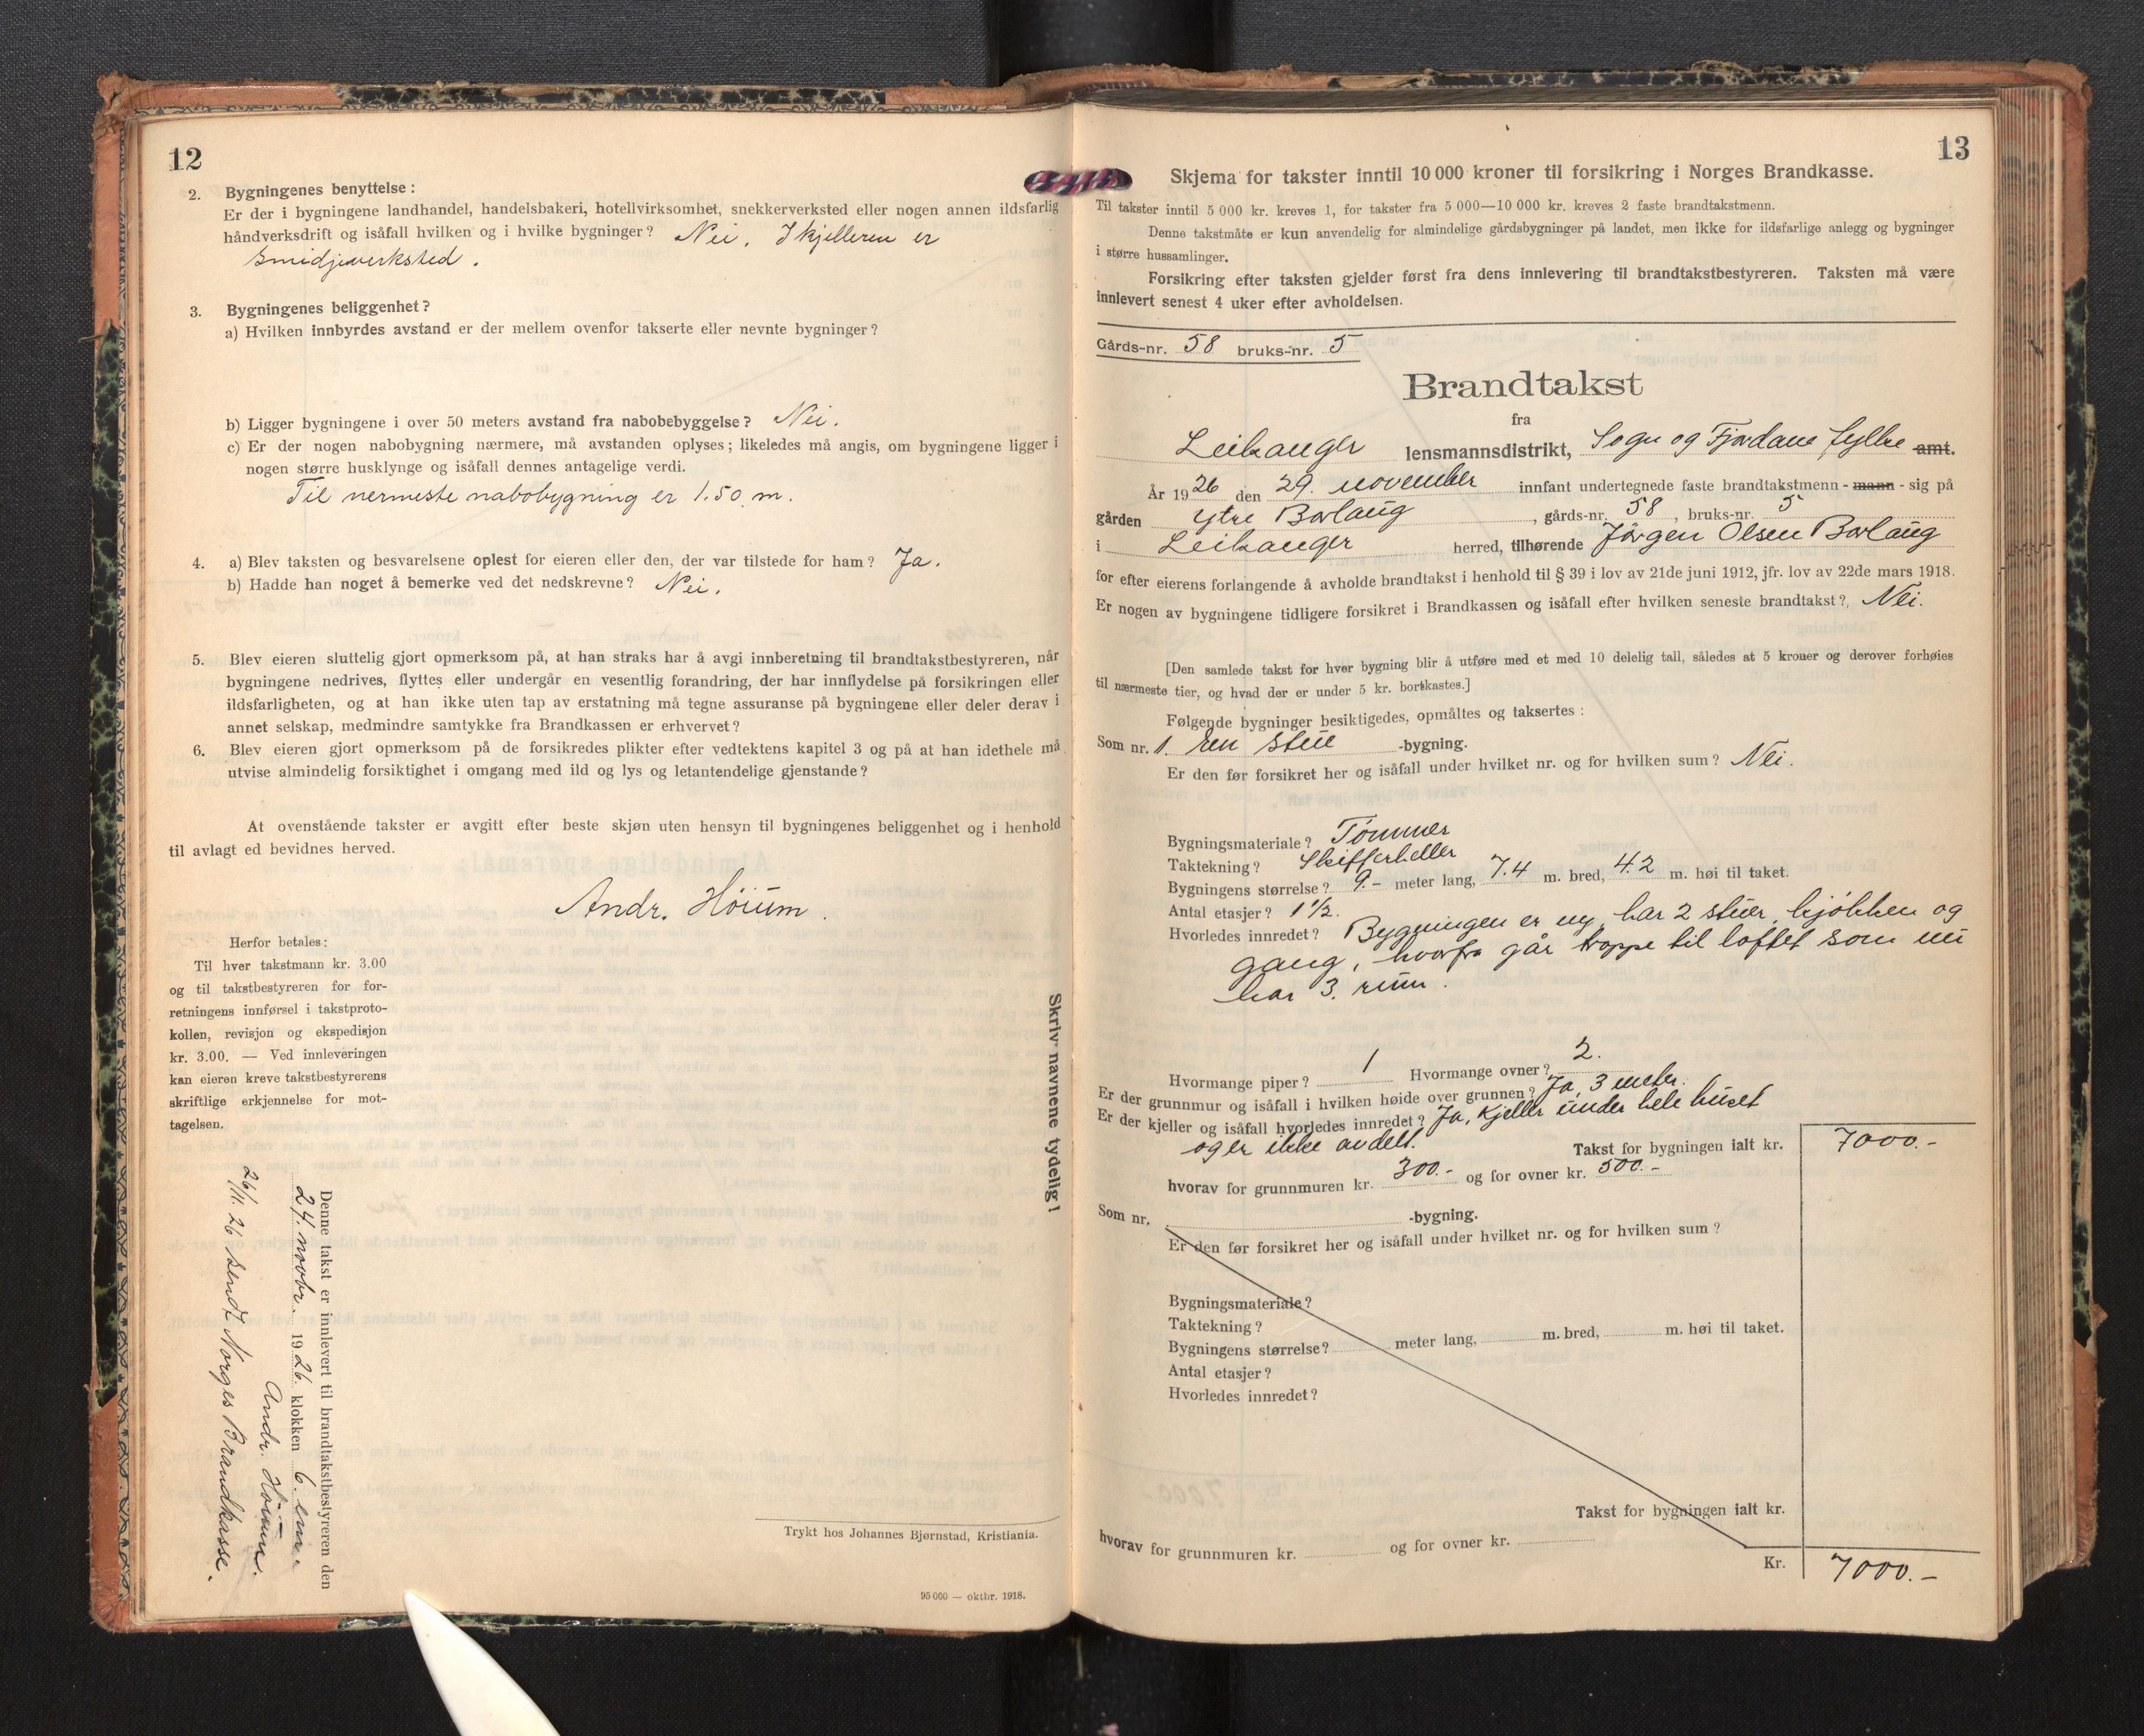 12
2. Bygningenes benyttelse:
Er der i bygningene landhandel, handelsbakeri, hotellvirksomhet, snekkerverksted eller nogen annen ildsfarlig
håndverksdrift og isåfall hvilken og i hvilke bygninger? Nei. I kjelleren er
smidjeverksted.
3. Bygningenes beliggenhet?
a) Hvilken innbyrdes avstand er der mellem ovenfor takserte eller nevnte bygninger?
b) Ligger bygningene i over 50 meters avstand fra nabobebyggelse? Nei.
c) Er der nogen nabobygning nærmere, må avstanden oplyses; likeledes må angis, om bygningene ligger i
nogen større husklynge og isåfall dennes antagelige verdi.
Til nermeste nabobygning er 1.50 m.
4. a) Blev taksten og besvarelsene oplest for eieren eller den, der var tilstede for ham? Ja.
b) Hadde han noget å bemerke ved det nedskrevne? Nei.
5. Blev eieren sluttelig gjort opmerksom på, at han straks har å avgi innberetning til brandtakstbestyreren, når
bygningene nedrives, flyttes eller undergår en vesentlig forandring, der har innflydelse på forsikringen eller
ildsfarligheten, og at han ikke uten tap av erstatning må tegne assuranse på bygningene eller deler derav i
annet selskap, medmindre samtykke fra Brandkassen er erhvervet?
6. Blev eieren gjort opmerksom på de forsikredes plikter efter vedtektens kapitel 3 og på at han idethele må
utvise almindelig forsiktighet i omgang med ild og lys og letantendelige gjenstande?
At ovenstående takster er avgitt efter beste skjøn uten hensyn til bygningenes beliggenhet og i henhold
til avlagt ed bevidnes herved.
Andr. Höium.
Herfor betales:
Til hver takstmann kr. 3.00
og til takstbestyreren for for-
retningens innførsel i takstproto-
kollen, revisjon og ekspedisjon
kr. 3.00. — Ved innleveringen
kan eieren kreve takstbestyrerens
skriftlige erkjennelse for mot-
tagelsen.
Skriv navnene tydelig!
Denne takst er innlevert til brandtakstbestyreren den
24. novbr. 1926. klokken 6. em.
Andr. Höium.
26/11. 26 sendt Norges Brandkasse.
Trykt hos Johannes Bjørnstad, Kristiania.
95 000 — oktbr. 1918.
13
Skjema for takster inntil 10 000 kroner til forsikring i Norges Brandkasse.
Til takster inntil 5 000 kr. kreves 1, for takster fra 5 000—10 000 kr. kreves 2 faste brandtakstmenn.
Denne takstmåte er kun anvendelig for almindelige gårdsbygninger på landet, men ikke for ildsfarlige anlegg og bygninger
i større hussamlinger.
Forsikring efter taksten gjelder først fra dens innlevering til brandtakstbestyreren. Taksten må være
innlevert senest 4 uker efter avholdelsen.
Gårds-nr. 58 bruks-nr. 5
Brandtakst
fra
Leikanger lensmannsdistrikt, Sogn og Fjordane fylke amt.
År 1926 den 29. november innfant undertegnede faste brandtakstmenn - mann - sig på
gården Ytre Borlaug, gårds-nr. 58, bruks-nr. 5
i Leikanger herred, tilhørende Jörgen Olsen Borlaug
for efter eierens forlangende å avholde brandtakst i henhold til § 39 i lov av 21de juni 1912, jfr. lov av 22de mars 1918.
Er nogen av bygningene tidligere forsikret i Brandkassen og isåfall efter hvilken seneste brandtakst? Nei.
[Den samlede takst for hver bygning blir å utføre med et med 10 delelig tall, således at 5 kroner og derover forhøies
til nærmeste tier, og hvad der er under 5 kr. bortkastes.]
Følgende bygninger besiktigedes, opmåltes og taksertes:
Som nr. 1. Een stue -bygning.
Er den før forsikret her og isåfall under hvilket nr. og for hvilken sum? Nei.
Bygningsmateriale? Tömmer
Taktekning? Skifferheller
Bygningens størrelse? 9.- meter lang, 7.4 m. bred, 4.2 m. høi til taket.
Antal etasjer? 1 1/2.
Hvorledes innredet? Bygningen er ny, har 2 stuer, kjökken og
gang, hvorfra går trappe til loftet som nu
har 3. rum.
Hvormange piper? 1 Hvormange ovner? 2.
Er der grunnmur og isåfall i hvilken høide over grunnen? Ja, 3 meter.
Er der kjeller og isåfall hvorledes innredet? Ja, kjeller under hele huset
og er ikke avdelt.
Takst for bygningen ialt kr. 7000.-
hvorav for grunnmuren kr. 300.- og for ovner kr. 500.-
Som nr. -bygning.
Er den før forsikret her og isåfall under hvilket nr. og for hvilken sum?
Bygningsmateriale?
Taktekning?
Bygningens størrelse? meter lang, m. bred, m. høi til taket.
Antal etasjer?
Hvorledes innredet?
Takst for bygningen ialt kr.
hvorav for grunnmuren kr. og for ovner kr.
Kr. 7000.-